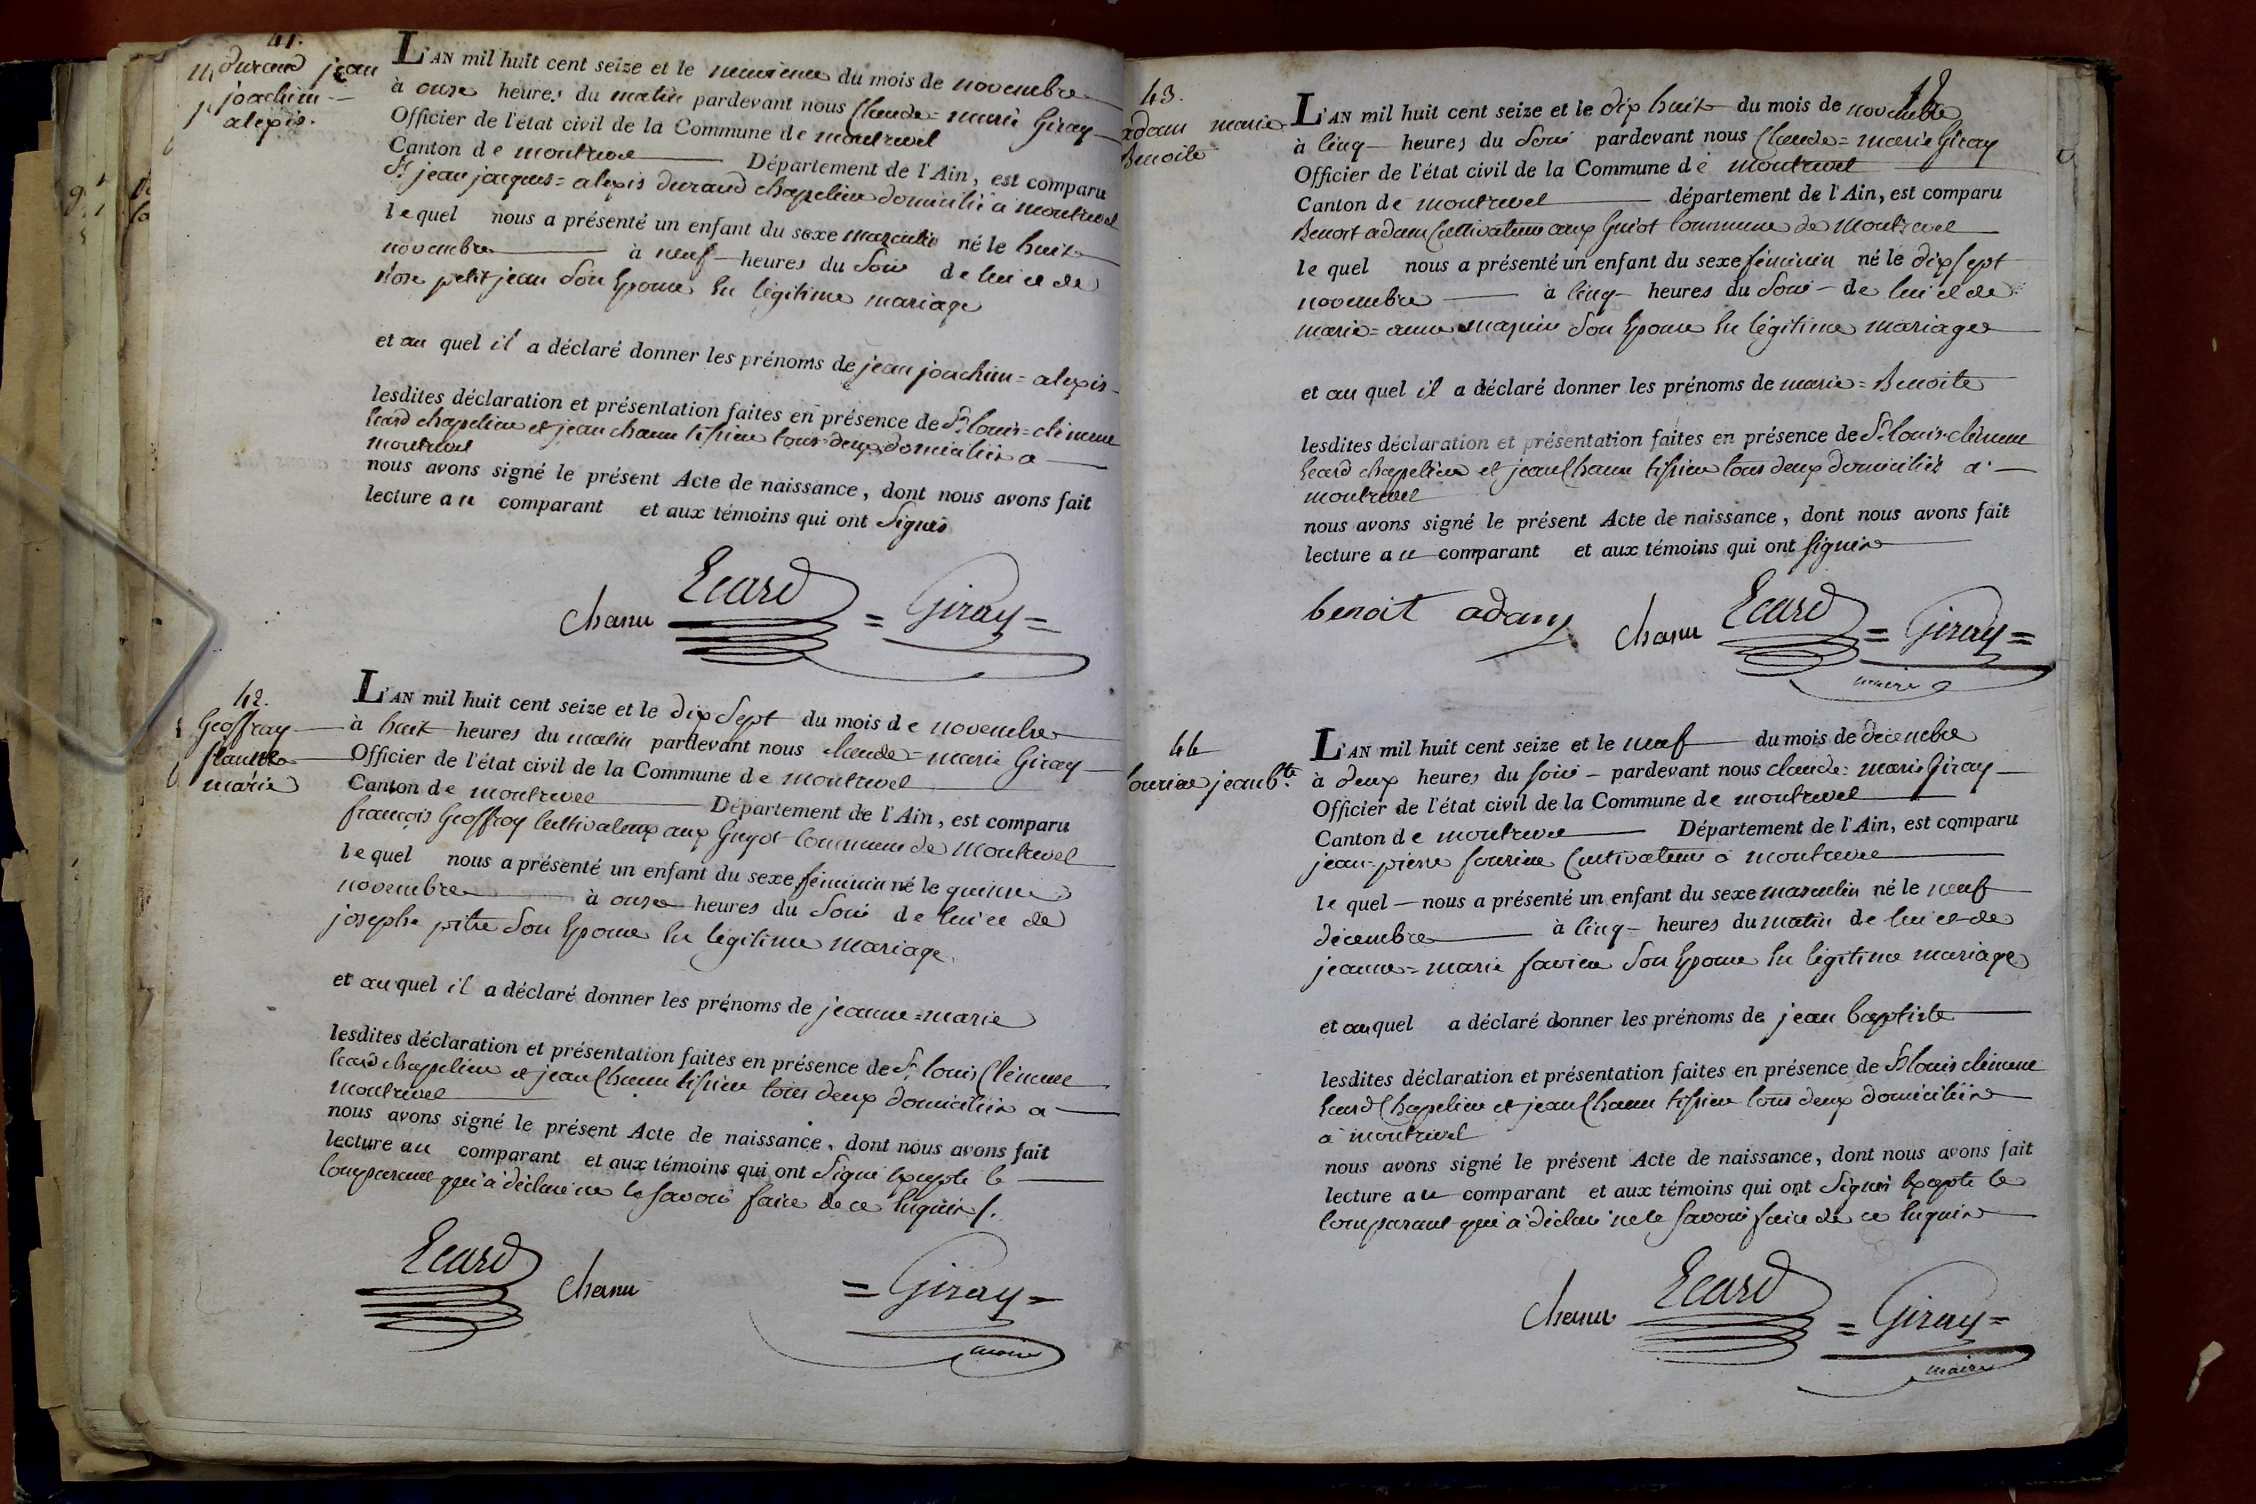 41.
durand jean
joachim
alexis.
L'AN mil huit cent seize et le neuvieme du mois de novembre
à onze heures du matin pardevant nous Claude = marie Giray
Officier de l'état civil de la Commune de montrevel
Canton de montrevel Département de l'Ain, est comparu
Sr. jean jacques = alexis durand chapelier domicilié à montrevel
lequel nous a présenté un enfant du sexe masculin né le huit
novembre à neuf heures du Soir de lui et de
petit jean Son Epouse En légitime mariage
et au quel il a déclaré donner les prénoms de jean joachim = alexis
lesdites déclaration et présentation faites en présence de Sr. louis = clément
Ecard chapelier et jean chanu tissier tous deux domiciliés a
montrevel
nous avons signé le présent Acte de naissance, dont nous avons fait
lecture au comparant et aux témoins qui ont Signés
chanu Ecard = Giray =
42.
Geoffray
marie
L'AN mil huit cent seize et le dix Sept du mois de novembre
à huit heures du matin pardevant nous claude = marie Giray
Officier de l'état civil de la Commune de montrevel
Canton de montrevel Département de l'Ain, est comparu
françois Geoffroy Cultivateur aux Guyot Commune de Montrevel
lequel nous a présenté un enfant du sexe féminin né le quinze
novembre à onze heures du Soir de lui et de
josephe pitre Son Epouse En légitime mariage.
et au quel il a déclaré donner les prénoms de jeanne = marie
lesdites déclaration et présentation faites en présence de Sr. louis Clément
Ecard chapelier et jean Chanu tissier tous deux domiciliés a
montrevel
nous avons signé le présent Acte de naissance, dont nous avons fait
lecture au comparant et aux témoins qui ont Signé Excepté le
Comparant qui a déclaré ne le Savoir faire de ce Enquis /.
Ecard chanu = Giray =
maire
43.
adam marie
Benoite
L'AN mil huit cent seize et le dix huit du mois de novembre
à Cinq heures du Soir pardevant nous Claude = marie Giray
Officier de l'état civil de la Commune de montrevel
Canton de montrevel département de l'Ain, est comparu
Benoit adam Cultivateur aux Guiot Commune de Montrevel
lequel nous a présenté un enfant du sexe féminin né le dix sept
novembre à Cinq heures du Soir de lui et de
marie = anne Son Epouse En légitime mariage
et au quel il a déclaré donner les prénoms de marie = Benoite
lesdites déclaration et présentation faites en présence de Sr. louis clément
Ecard chapelier et jean Chanu tissier tous deux domiciliés a
montrevel
nous avons signé le présent Acte de naissance, dont nous avons fait
lecture au comparant et aux témoins qui ont Signés
benoit adam chanu Ecard = Giray =
maire
44
jean bte
L'AN mil huit cent seize et le neuf du mois de décembre
à deux heures du soir pardevant nous claude = marie Giray
Officier de l'état civil de la Commune de montrevel
Canton de montrevel Département de l'Ain, est comparu
jean = pierre Cultivateur à montrevel
lequel nous a présenté un enfant du sexe masculin né le neuf
décembre à Cinq heures du matin de lui et de
jeanne = marie Son Epouse En légitime mariage
et au quel a déclaré donner les prénoms de jean baptiste
lesdites déclaration et présentation faites en présence de Sr louis clément
Ecard Chapelier et jean Chanu tissier tous deux domiciliés
a montrevel
nous avons signé le présent Acte de naissance, dont nous avons fait
lecture au comparant et aux témoins qui ont Signés Excepté le
Comparant qui a déclaré ne le Savoir faire de ce Enquis
chanu Ecard = Giray =
maire